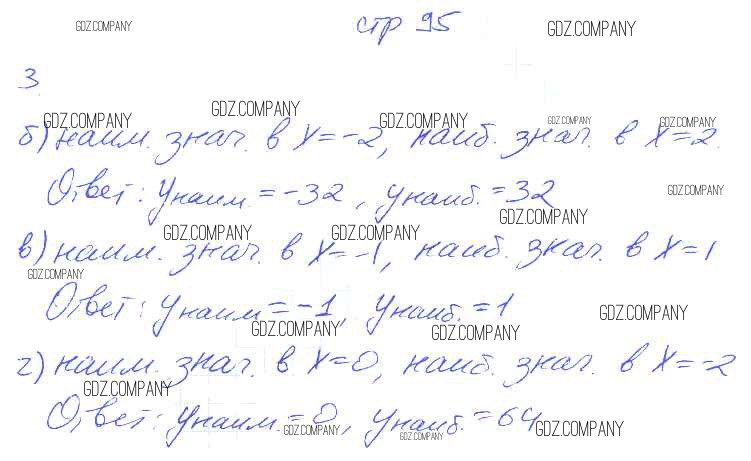 GDZ.COMPANY стр 95 GDZ.COMPANY
3
GDZ.COMPANY GDZ.COMPANY GDZ.COMPANY GDZ.COMPANY GDZ.COMPANY
б) наим. знач. в x=-2, наиб. знач. в x=2.
Ответ: yнаим.=-32, yнаиб.=32 GDZ.COMPANY
GDZ.COMPANY GDZ.COMPANY GDZ.COMPANY
в) наим. знач. в x=-1, наиб. знач. в x=1
GDZ.COMPANY
Ответ: yнаим=-1, yнаиб.=1 GDZ.COMPANY
GDZ.COMPANY GDZ.COMPANY
г) наим. знач. в x=0, наиб. знач. в x=-2
GDZ.COMPANY
Ответ: yнаим.=0, yнаиб.=64
GDZ.COMPANY GDZ.COMPANY GDZ.COMPANY